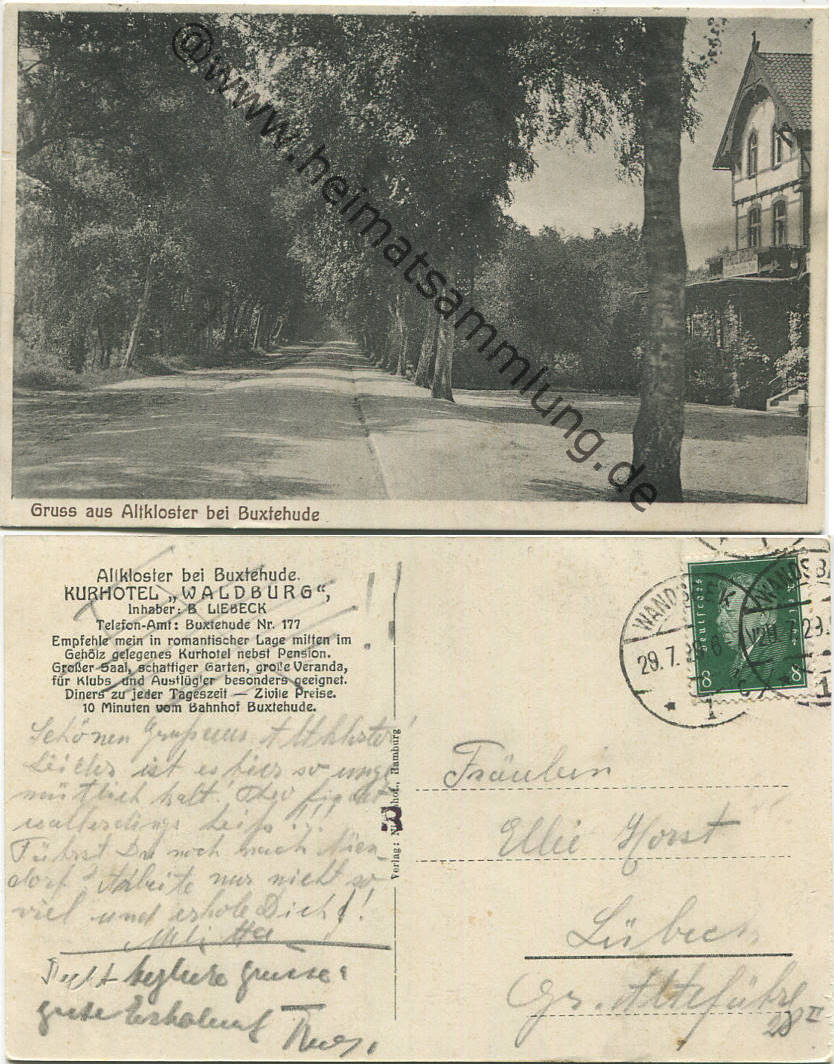 @www.heimatsammlung.de
Gruss aus Altkloster bei Buxtehude
Altkloster bei Buxtehude.
KURHOTEL „WALDBURG“,
Inhaber: B. LIEBECK
Telefon-Amt: Buxtehude Nr. 177
Empfehle mein in romantischer Lage mitten im
Gehölz gelegenes Kurhotel nebst Pension.
Großer Saal, schattiger Garten, große Veranda,
für Klubs und Ausflügler besonders geeignet.
Diners zu jeder Tageszeit — Zivile Preise.
10 Minuten vom Bahnhof Buxtehude.
Schönen Gruß aus Altkloster!
Leider ist es hier so unge
mütlich kalt! Theo findet
es allerdings heiß!!!
Fährst Du noch nach Nien-
dorf? Arbeite nur nicht so
viel und erhole Dich!!
Recht herzliche Grüsse
gute Erholung
Verlag: Hamburg
WANDSBEK
29.7.29.
1
WANDSB
29.7.29.
1
Deutsches Reich
8 8
Fräulein
Ellie Horst
Lübeck
Gr. Altefähre
28 II